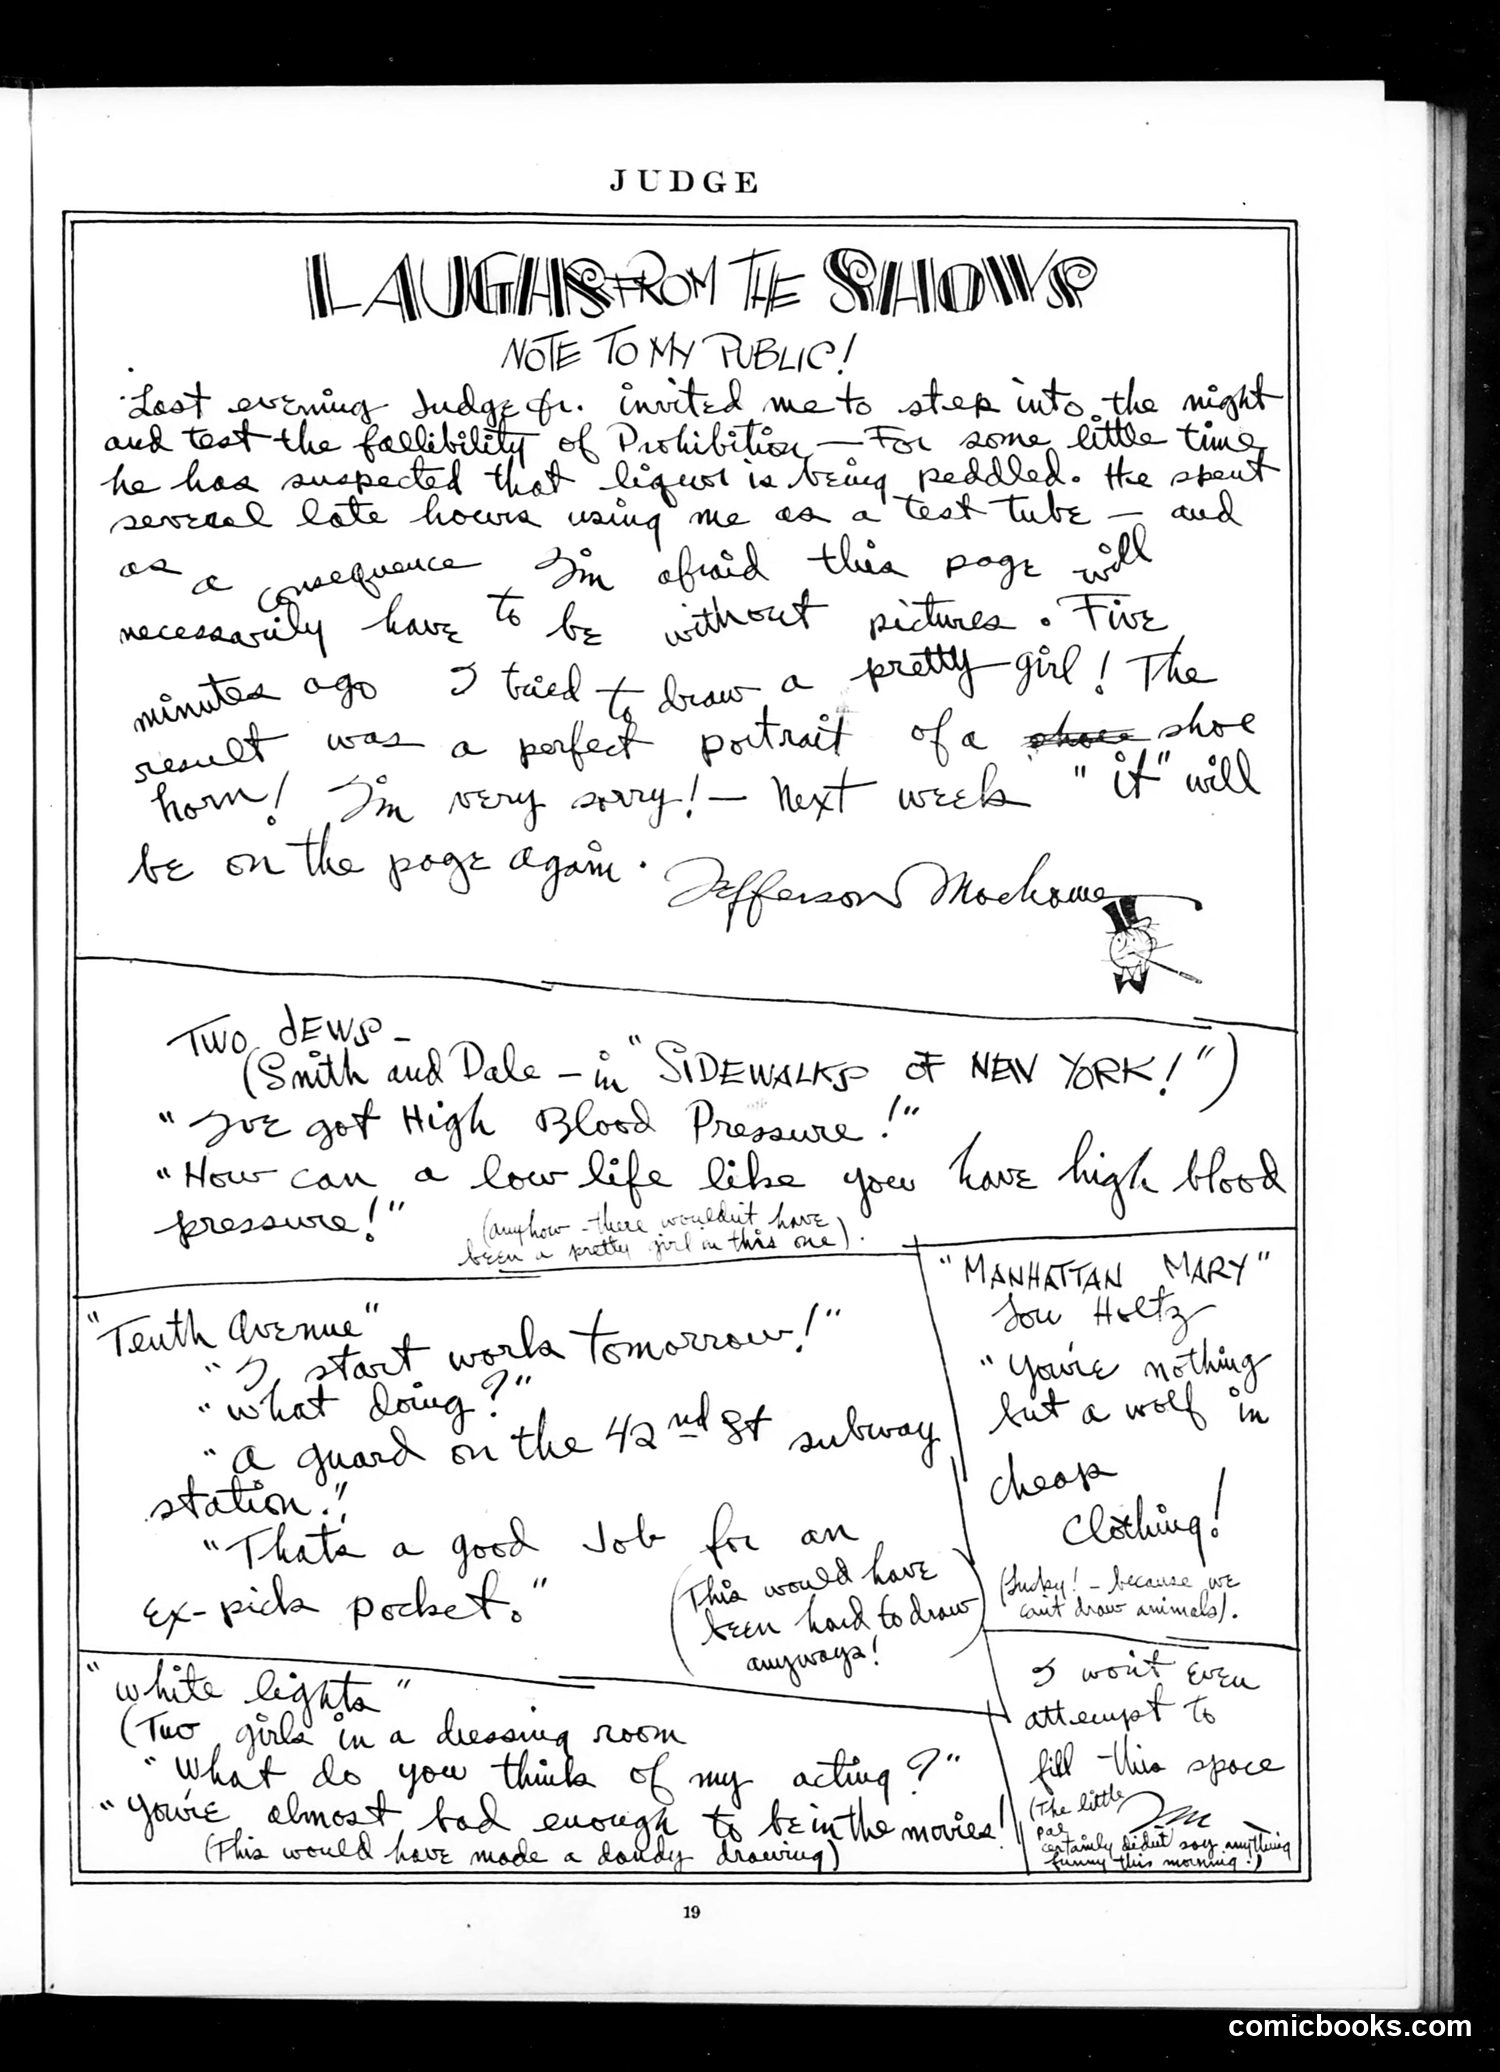 JUDGE
LAUGHS FROM THE SHOWS
NOTE TO MY PUBLIC!
Last evening Judge Jr. invited me to step into the night
and test the fallibility of Prohibition — For some little time
he has suspected that liquor is being peddled. He spent
several late hours using me as a test tube — and
as a consequence I'm afraid this page will
necessarily have to be without pictures. Five
minutes ago I tried to draw a pretty girl! The
result was a perfect portrait of a shoe
horn! I'm very sorry! — Next week "it" will
be on the page again.
Jefferson Machamer
TWO JEWS —
(Smith and Dale — in "SIDEWALKS OF NEW YORK!")
"I've got High Blood Pressure!"
"How can a low life like you have high blood
pressure!"
(anyhow - there wouldn't have
been a pretty girl in this one).
"Tenth Avenue"
"I start work tomorrow!"
"what doing?"
"a guard on the 42nd St subway
station!"
"Thats a good Job for an
Ex-pick pocket."
(This would have
been hard to draw
anyways!)
"MANHATTAN MARY"
Lou Holtz
"You're nothing
but a wolf in
cheap
Clothing!
(Lucky! - because we
can't draw animals).
"White lights"
(Two girls in a dressing room
"What do you think of my acting?"
"You're almost bad enough to be in the movies!
(This would have made a dandy drawing)
I won't even
attempt to
fill this space
(The little
pal
certainly didn't say anything
funny this morning!)
19
comicbooks.com